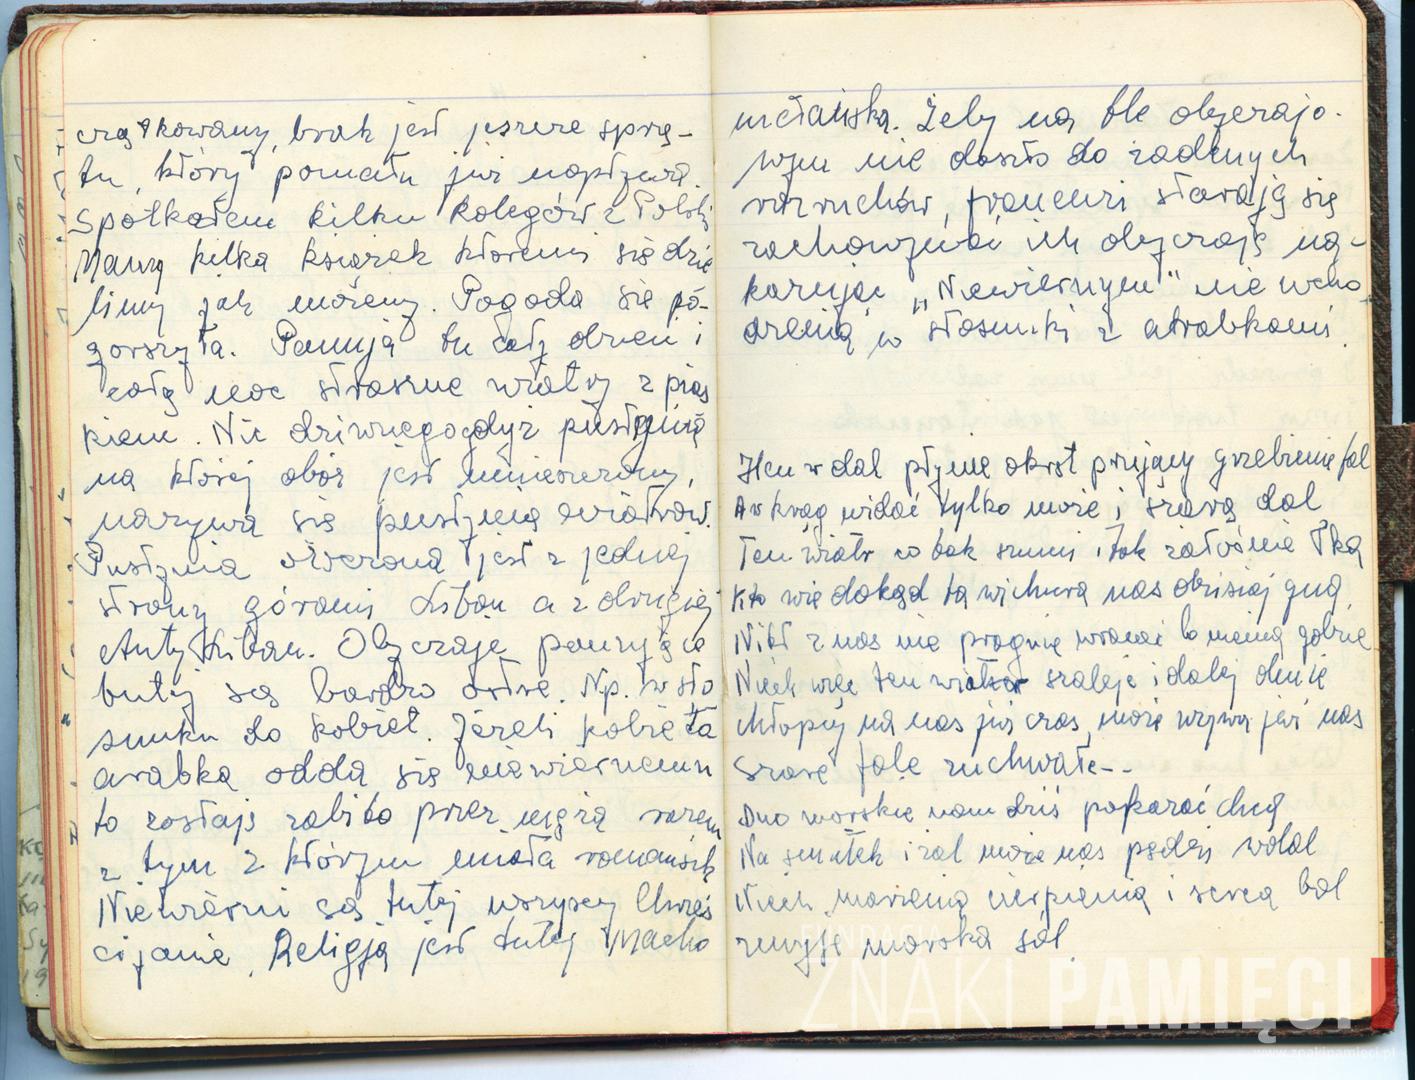 czątkowany, brak jest jeszcze sprzę-
tu, który pomału już napływa.
Spotkałem kilku kolegów z Polski
Mamy kilka książek któremi się dzie
limy jak możemy. Pogoda się po-
gorszyła. Panują tu cały dzień i
całą noc straszne wiatry z pias
kiem. Nic dziwnego gdyż pustynia
na której obóz jest umieszczony,
nazywa się pustynią wiatrów.
Pustynia otoczona jest z jednej
strony górami Liban a z drugiej
Anty Liban. Obyczaje panujące
tutaj są bardzo ostre. Np. w sto
sunku do kobiet. Jeżeli kobieta
arabka odda się niewiernemu
to zostaje zabita przez męża razem
z tym z którym miała romansik
Niewierni są tutaj wszyscy Chrześ
cijanie. Religją jest tutaj Macho
metańska. Żeby na tle obyczajo-
wym nie doszło do żadnych
rozruchów, francuzi starają się
zachowywać ich obyczaje na-
kazując „Niewiernym" nie wcho-
dzenia w stosunki z arabkami.
Hen w dal płynie okręt prujący grzebienie fal
A w krąg widać tylko morze i szarą dal
Ten wiatr co tak szumi i tak żałośnie łka
Kto wie dokąd ta wichura nas dzisiaj gna
Nikt z nas nie pragnie wracać bo niema gdzie
Niech więc ten wiatr szaleje i dalej dmie
Chłopcy na nas już czas, morze wzywa już nas
Szare fale zuchwałe--
Dno morskie nam dziś pokazać chcą
Na smutek i żal morze nas pędzi w dal
Niech marzenia cierpienia i serca ból
zmyje morska sól.
FUNDACJA
ZNAKI PAMIĘCI
www.znakipamieci.pl